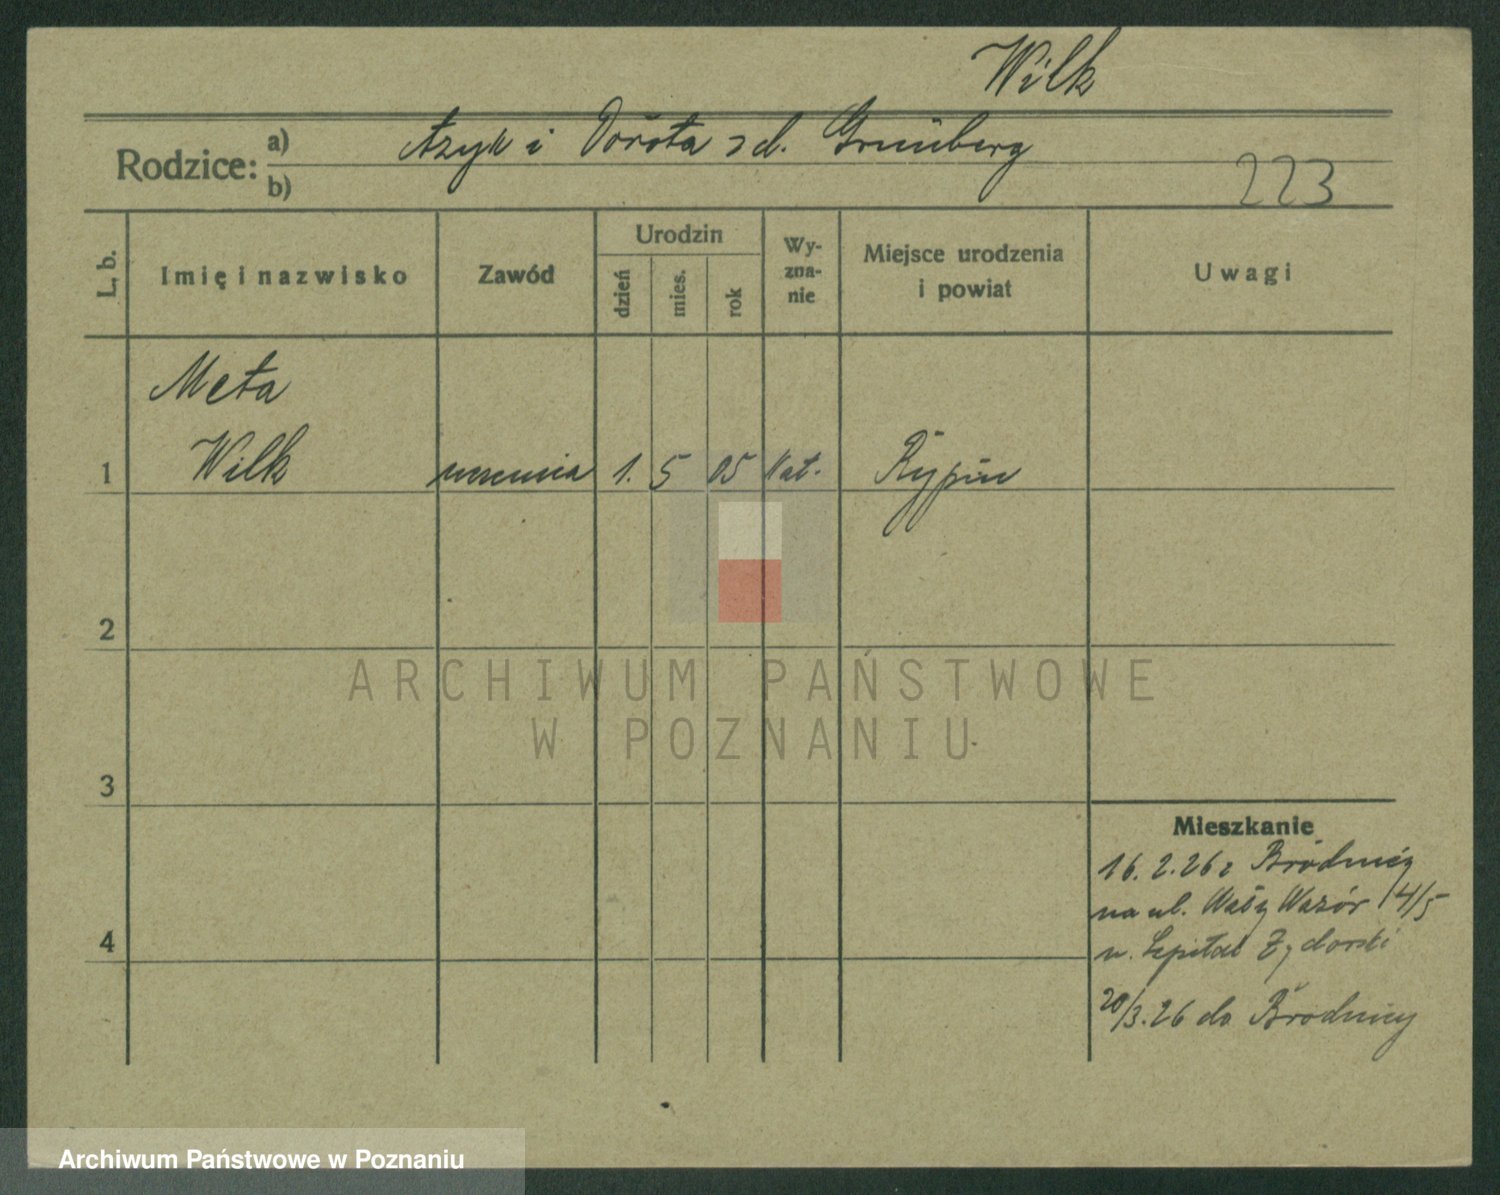 Wilk
Rodzice: a) Azyk i Dorota z d. Grünberg
b)
223
L. b.
Imię i nazwisko
Zawód
Urodzin
dzień
mies.
rok
Wy-
zna-
nie
Miejsce urodzenia
i powiat
Uwagi
Meta
1 Wilk uczenica 1. 5 05 Rypin
2
3
4
ARCHIWUM PAŃSTWOWE
W POZNANIU
Mieszkanie
16.2.26 z Brodnicy
na ul. Wały Wazów 14/5
w. Szpital Żydowski
20/3.26 do Brodnicy
Archiwum Państwowe w Poznaniu